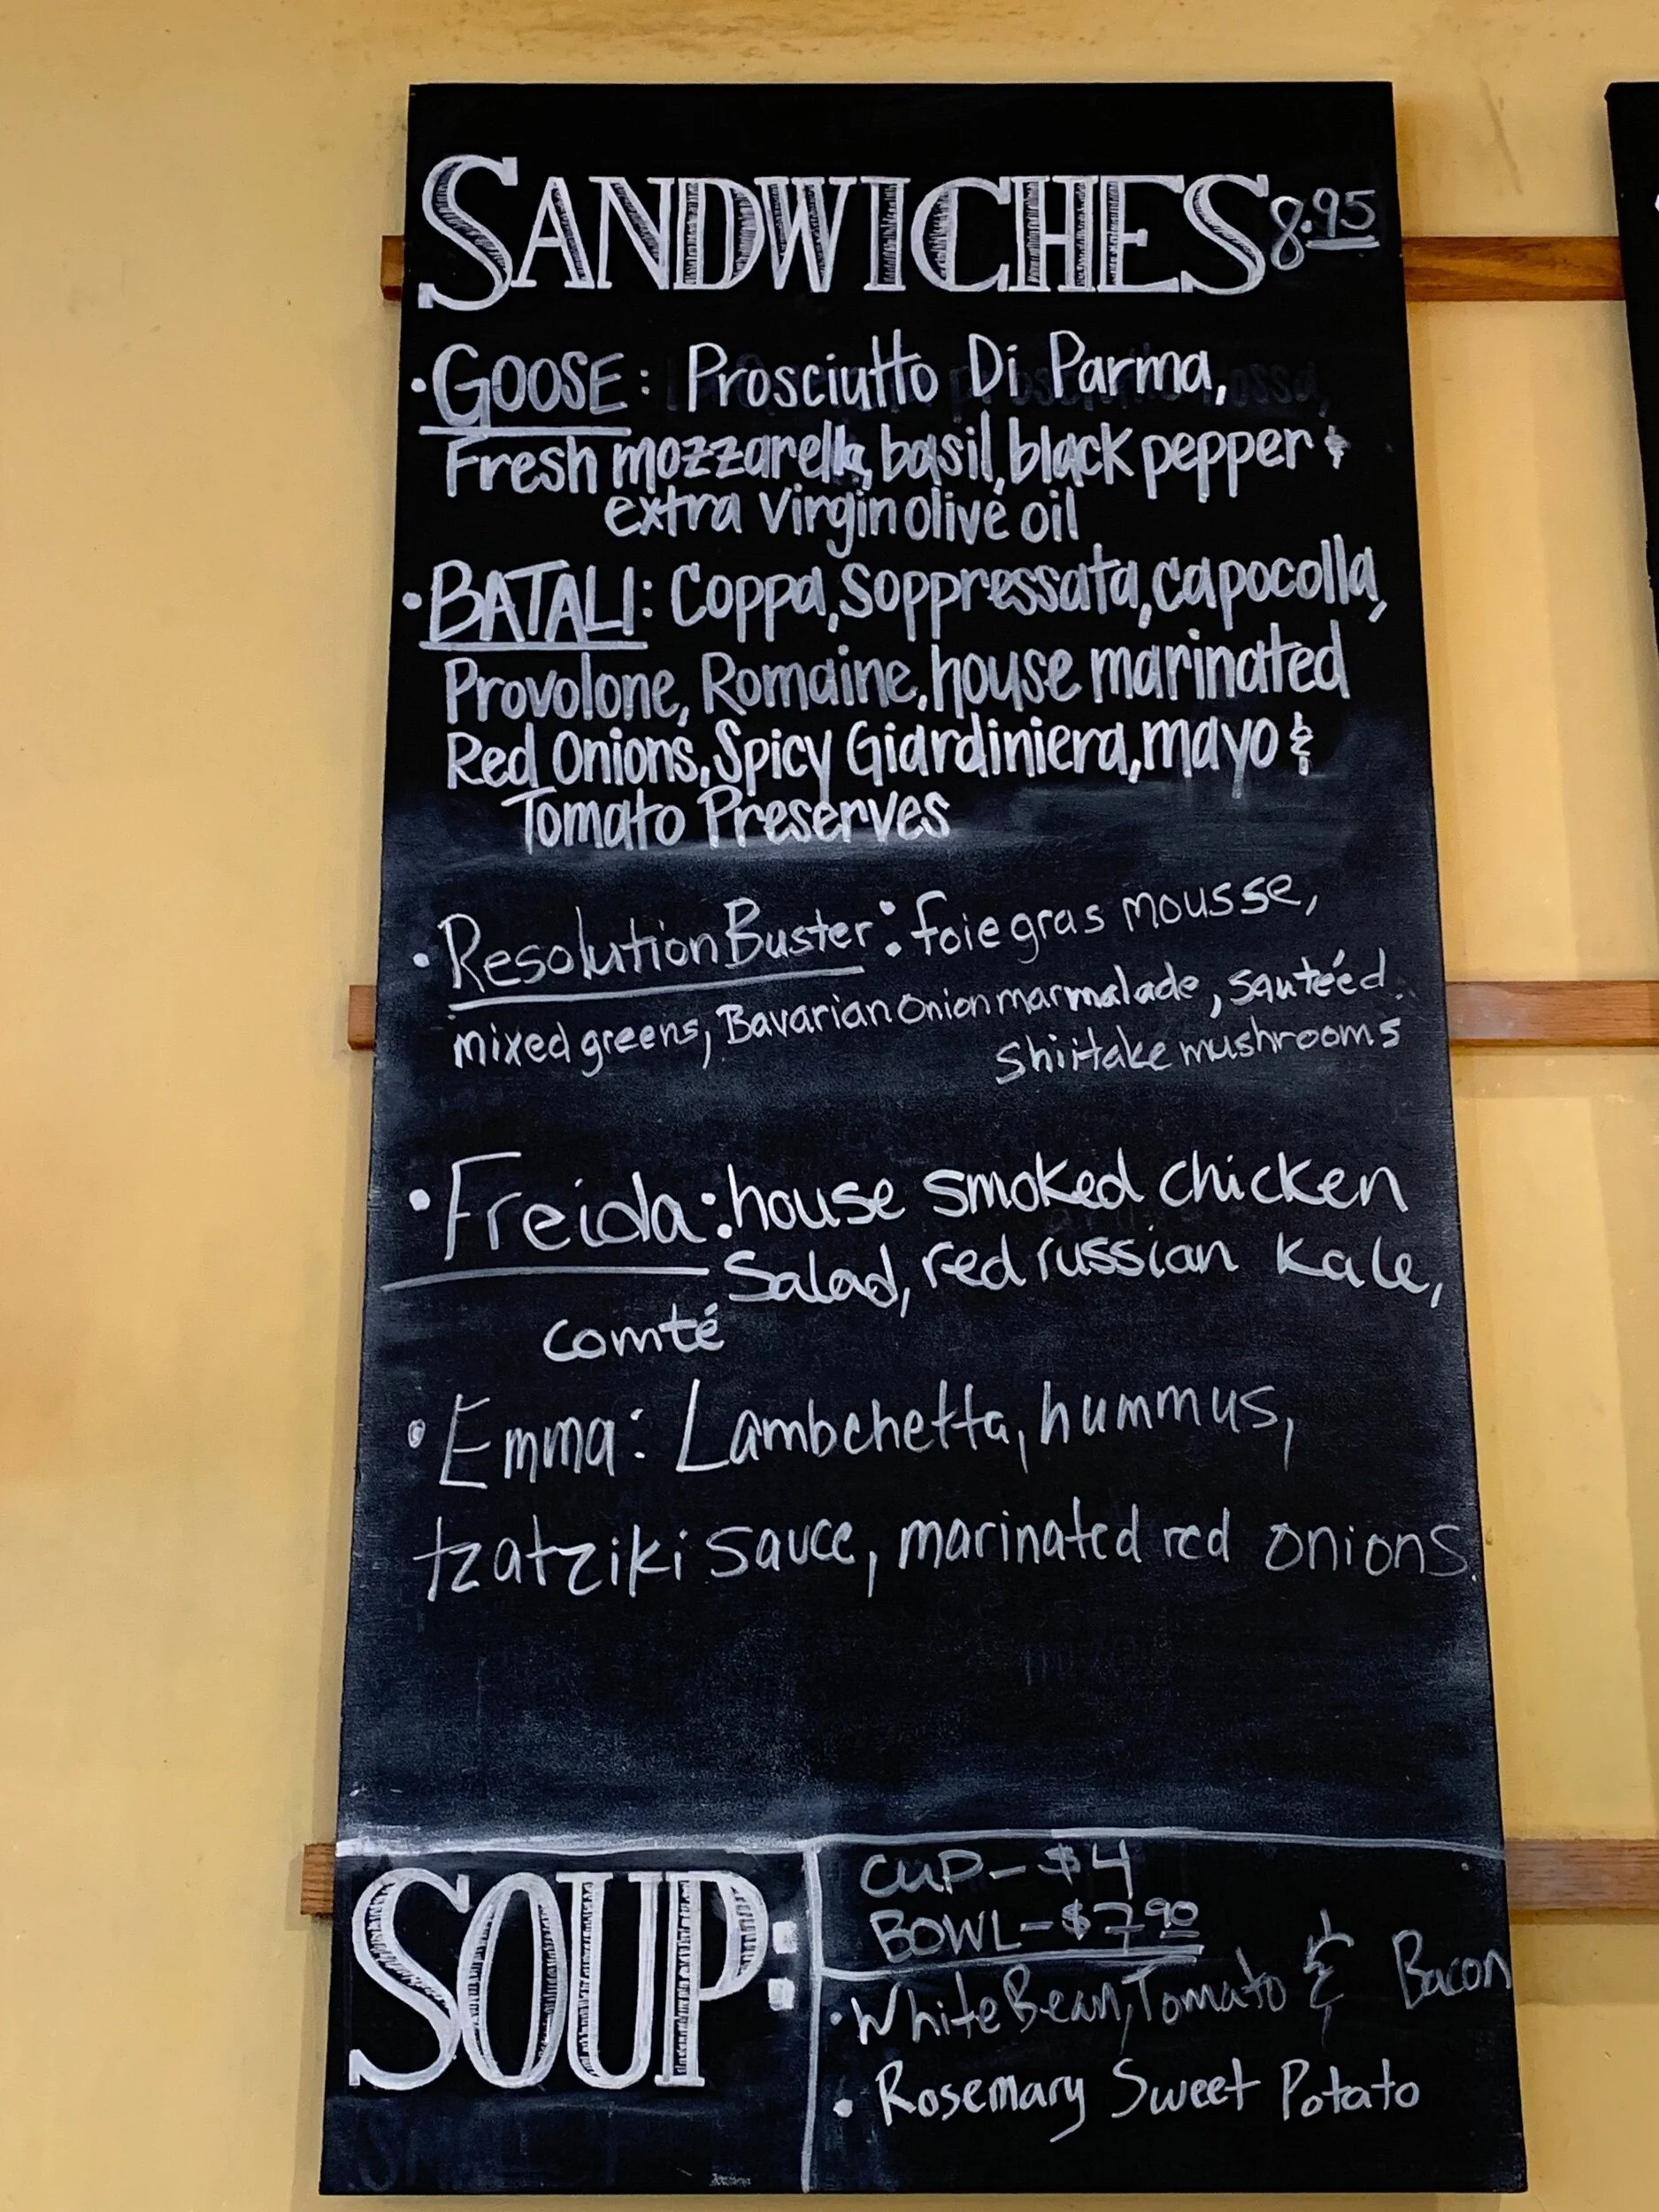 SANDWICHES 8.95
• GOOSE: Prosciutto Di Parma,
Fresh mozzarella, basil, black pepper &
extra virgin olive oil
• BATALI: Coppa, Soppressata, capocolla,
Provolone, Romaine, house marinated
Red Onions, Spicy Giardiniera, mayo &
Tomato Preserves
• Resolution Buster: foie gras mousse,
mixed greens, Bavarian onion marmalade, sautéed
shiitake mushrooms
• Freida: house smoked chicken
Salad, red russian kale,
comté
• Emma: Lambchetta, hummus,
tzatziki sauce, marinated red onions.
SOUP:
CUP - $4
BOWL - $7.90
• White Bean, Tomato & Bacon
• Rosemary Sweet Potato